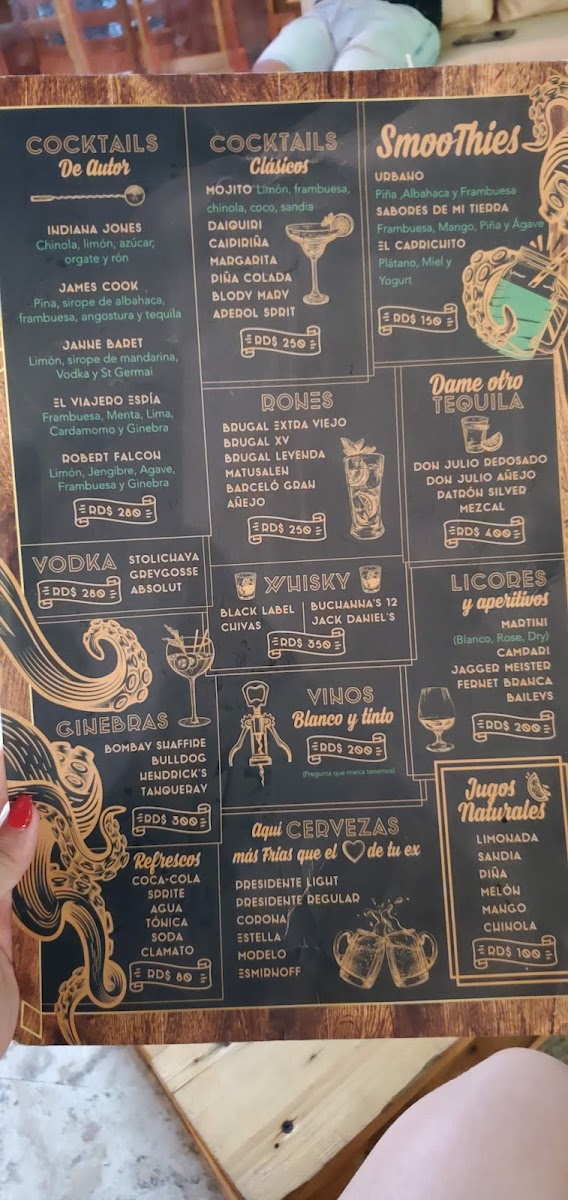 COCKTAILS
De Autor
INDIANA JONES
Chinola, limón, azúcar,
orgate y rón
JAMES COOK
Pina, sirope de albahaca,
frambuesa, angostura y tequila
JANNE BARET
Limón, sirope de mandarina,
Vodka y St Germai
EL VIAJERO ESPÍA
Frambuesa, Menta, Lima,
Cardamomo y Ginebra
ROBERT FALCON
Limón, Jengibre, Agave,
Frambuesa y Ginebra
RD$ 280
COCKTAILS
Clásicos
MOJITO Limón, frambuesa,
chinola, coco, sandia
DAIQUIRI
CAIPIRIÑA
MARGARITA
PIÑA COLADA
BLODY MARY
APEROL SPRIT
RD$ 250
SmooThies
URBANO
Piña ,Albahaca y Frambuesa
SABORES DE MI TIERRA
Frambuesa, Mango, Piña y Ágave
EL CAPRICHITO
Plátano, Miel y
Yogurt
RD$ 150
RONES
BRUGAL EXTRA VIEJO
BRUGAL XV
BRUGAL LEYENDA
MATUSALEN
BARCELÓ GRAN
AÑEJO
RD$ 250
Dame otro
TEQUILA
DON JULIO REPOSADO
DON JULIO AÑEJO
PATRÓN SILVER
MEZCAL
RD$ 400
VODKA
RD$ 280
STOLICHAYA
GREYGOSSE
ABSOLUT
WHISKY
BLACK LABEL
CHIVAS
BUCHANNA'S 12
JACK DANIEL'S
RD$ 350
LICORES
y aperitivos
MARTINI
(Blanco, Rose, Dry)
CAMPARI
JAGGER MEISTER
FERNET BRANCA
BAILEYS
RD$ 200
GINEBRAS
BOMBAY SHAFFIRE
BULLDOG
HENDRICK'S
TANQUERAY
RD$ 300
VINOS
Blanco y tinto
RD$ 200
(Pregunta que marca tenemos)
Refrescos
COCA-COLA
SPRITE
AGUA
TÓNICA
SODA
CLAMATO
RD$ 80
Aqui CERVEZAS
más Frias que el de tu ex
PRESIDENTE LIGHT
PRESIDENTE REGULAR
CORONA
ESTELLA
MODELO
ESMIRNOFF
Jugos
Naturales
LIMONADA
SANDIA
PIÑA
MELÓN
MANGO
CHINOLA
RD$ 100